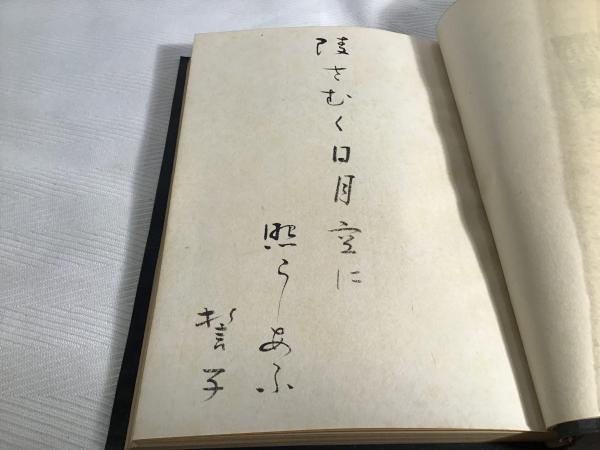 陵さむく日月空に
照らしあふ
誓子